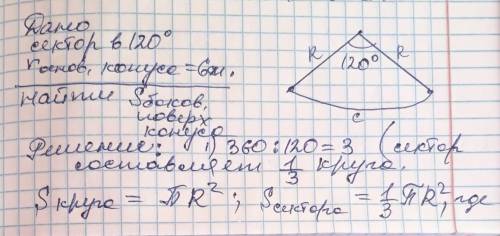 Дано
сектор в 120°
rоснов. конуса = 6см.
Найти Sбоков.
поверх.
конуса
R R
120°
C
Решение: 1) 360 : 120 = 3 (сектор
составляет 1/3 круга.
Sкруга = πR²; Sсектора = 1/3 πR², где